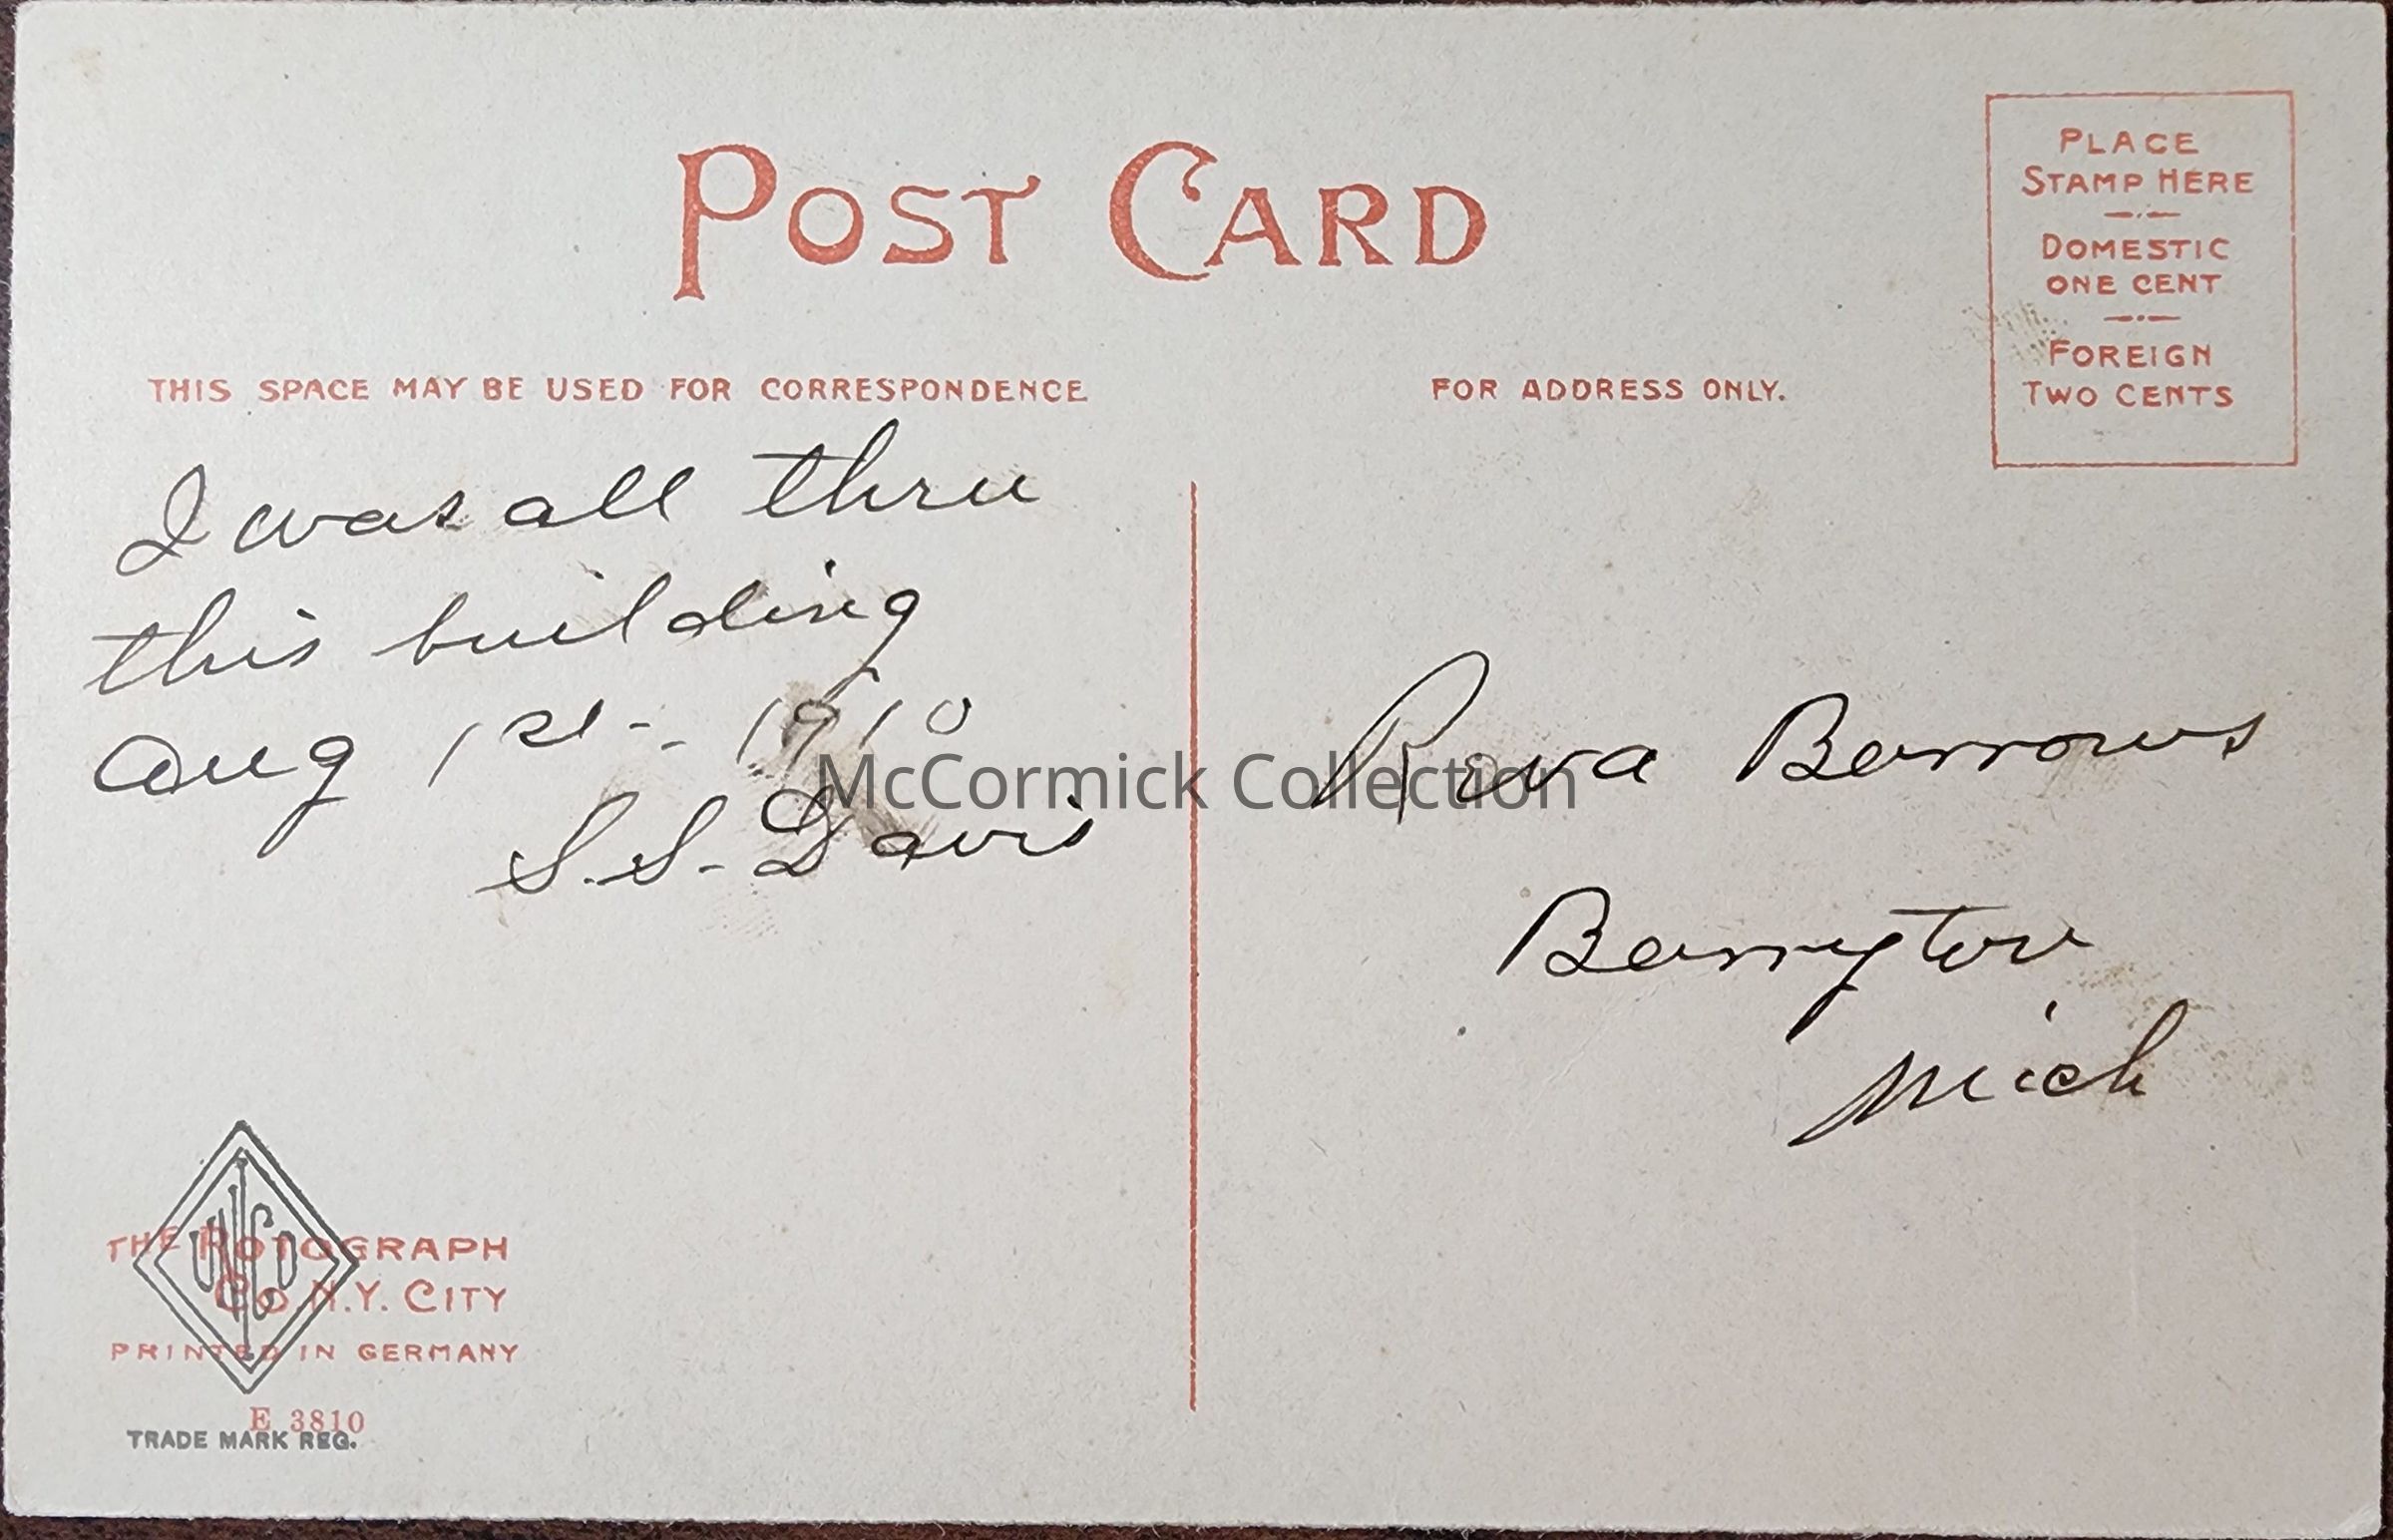 POST CARD
PLACE
STAMP HERE
DOMESTIC
ONE CENT
FOREIGN
TWO CENTS
THIS SPACE MAY BE USED FOR CORRESPONDENCE
FOR ADDRESS ONLY.
I was all thru
this building
Aug 1st - 1910
S.S. Davis
Reva Barrows
Barryton
Mich
McCormick Collection
THE ROTOGRAPH
CO. N.Y. CITY
PRINTED IN GERMANY
E 3810
TRADE MARK REG.